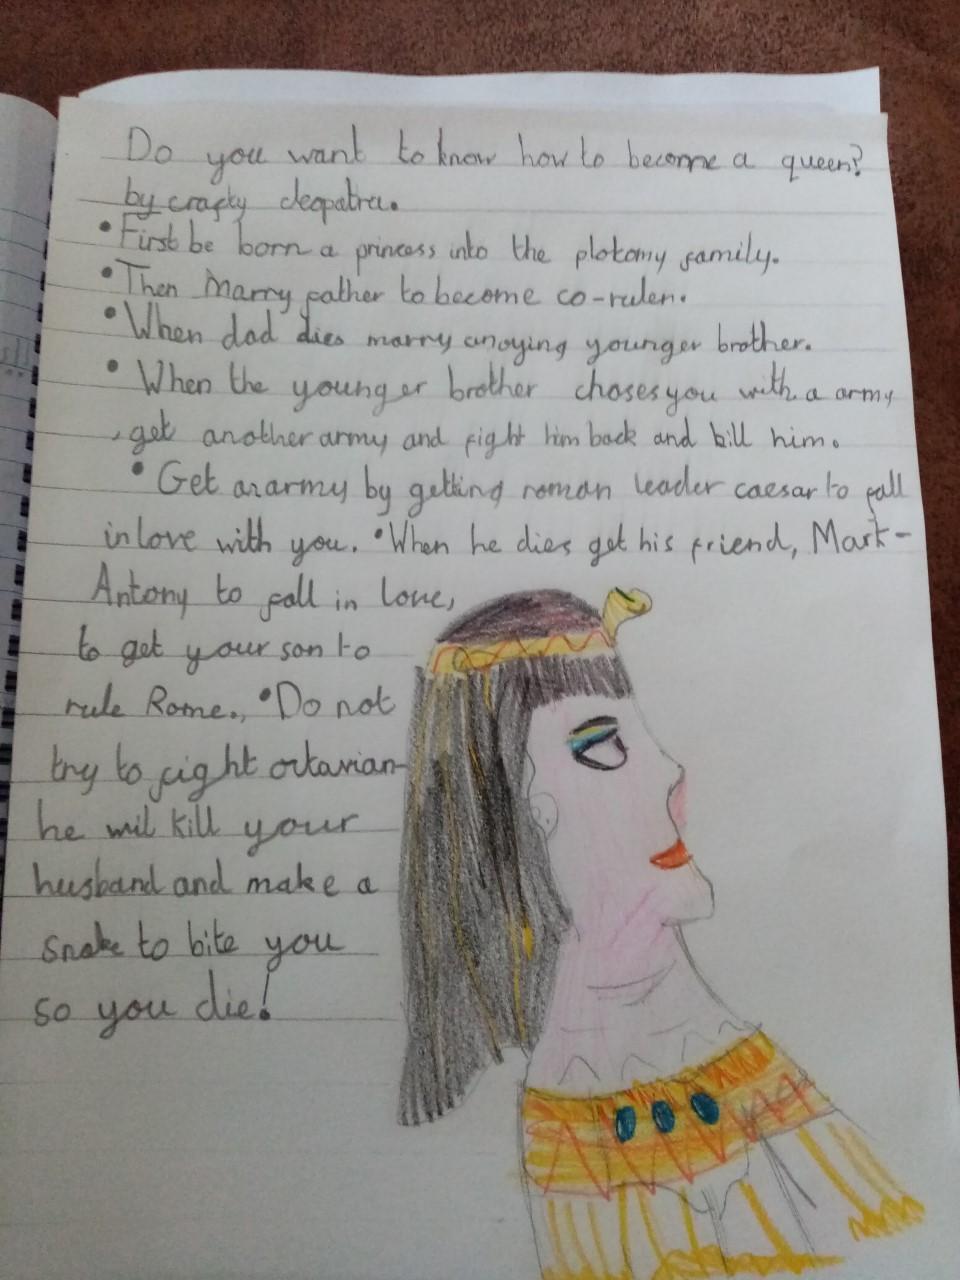 Do you want to know how to become a queen?
by crafty cleopatra.
• First be born a princess into the plotomy family.
• Then Marry father to become co-ruler.
• When dad dies marry anoying younger brother.
• When the younger brother chases you with a army
, get another army and fight him back and kill him.
• Get an army by getting roman leader caesar to fall
in love with you. • When he dies get his friend, Mark-
Antony to fall in love,
to get your son to
rule Rome., • Do not
try to fight octavian-
he will kill your
husband and make a
snake to bite you
so you die!